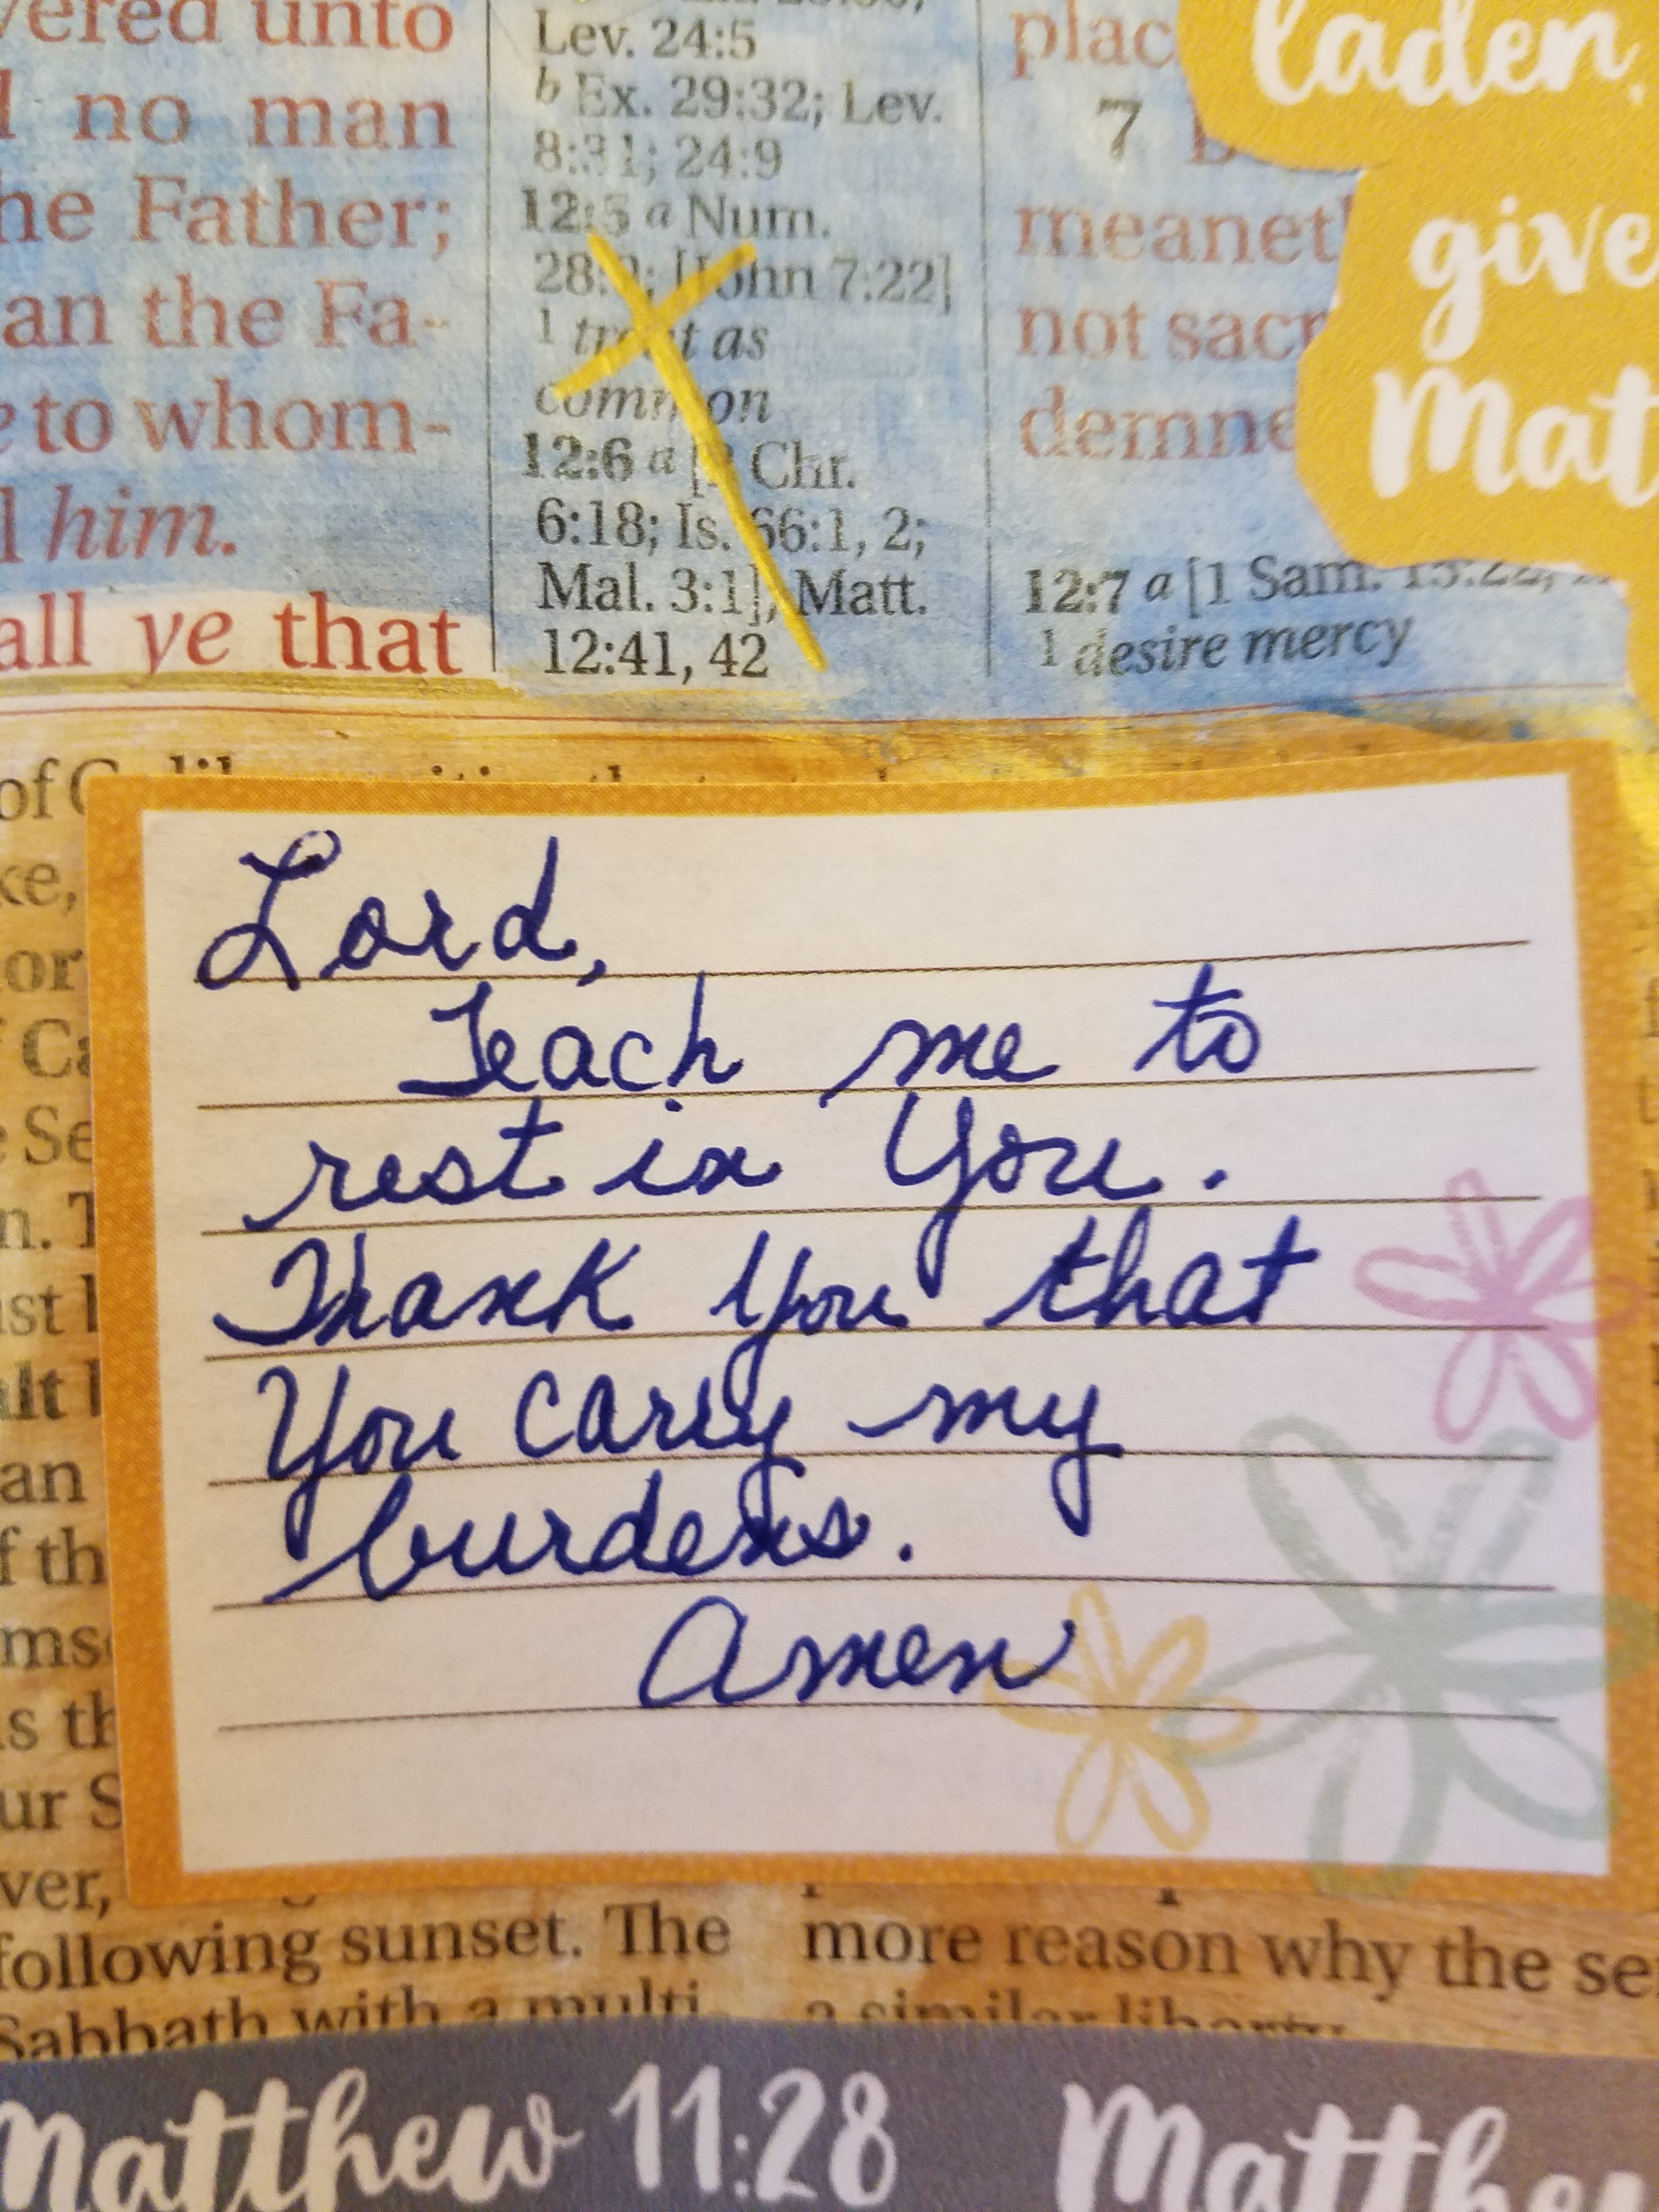 vered unto
no man
he Father;
an the Fa-
to whom-
him.
all ye that
Lev. 24:5
b Ex. 29:32; Lev.
8:31; 24:9
12:5 a Num.
28:9; [John 7:22]
1 treat as
common
12:6 a [2 Chr.
6:18; Is. 66:1, 2;
Mal. 3:1]; Matt.
12:41, 42
plac
7 B
meanet
not sacr
demne
12:7 a [1 Sam. 15:22;
1 desire mercy
laden,
give
Mat
Lord,
Teach me to
rest in You.
Thank You that
You carry my
burdens.
Amen
of G
ke,
or
f Ca
e Se
n. T
ust l
alt l
an
f th
mse
is th
ur S
ver,
following sunset. The
Sabbath with a multi
more reason why the se
a similar liberty
Matthew 11:28
Matthew